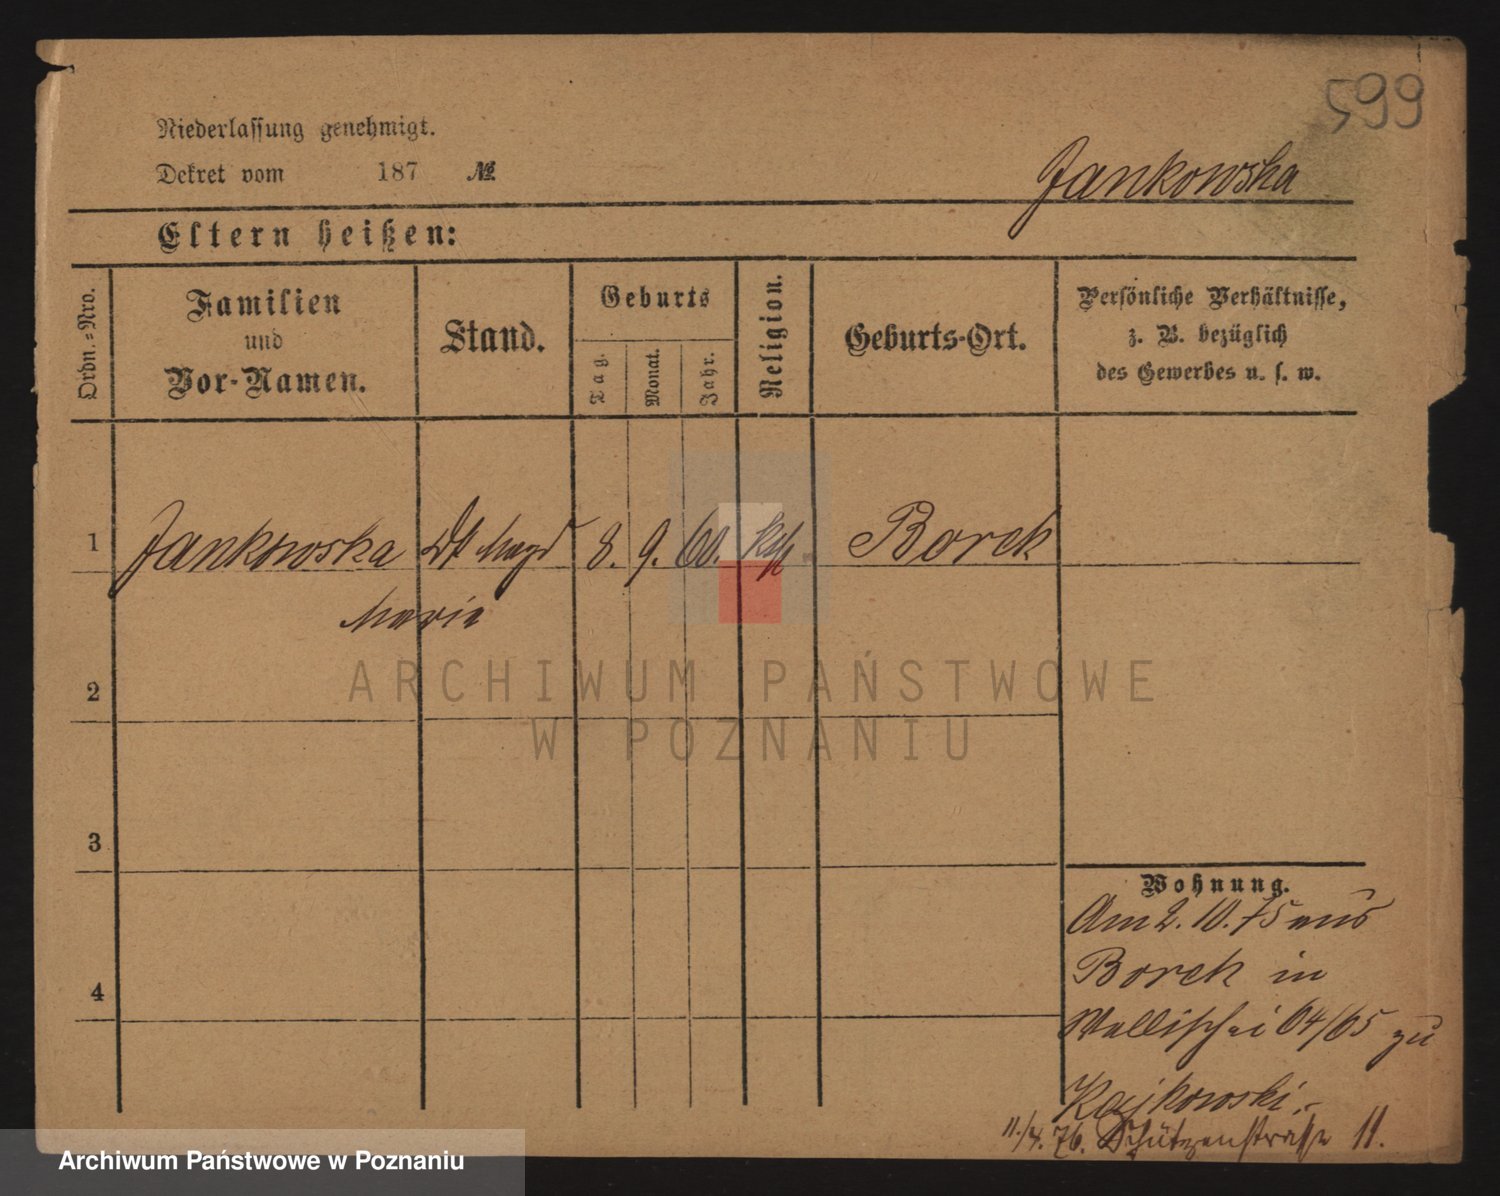 599
Niederlassung genehmigt.
Dekret vom 187 №
Jankowska
Eltern heißen:
Ordn.-Nro.
Familien
und
Vor-Namen.
Stand.
Geburts
Tag.
Monat.
Jahr.
Religion.
Geburts-Ort.
Persönliche Verhältnisse,
z. B. bezüglich
des Gewerbes u. s. w.
1 Jankowska Magd 8. 9. 60. kth Borek
Marie
2
3
4
Wohnung.
Am 2. 10. 75 aus
Borek in
Wallischei 64/65 zu
Kajkowski.-
11./4. 76. Schützenstrasse 11.
ARCHIWUM PAŃSTWOWE
W POZNANIU
Archiwum Państwowe w Poznaniu